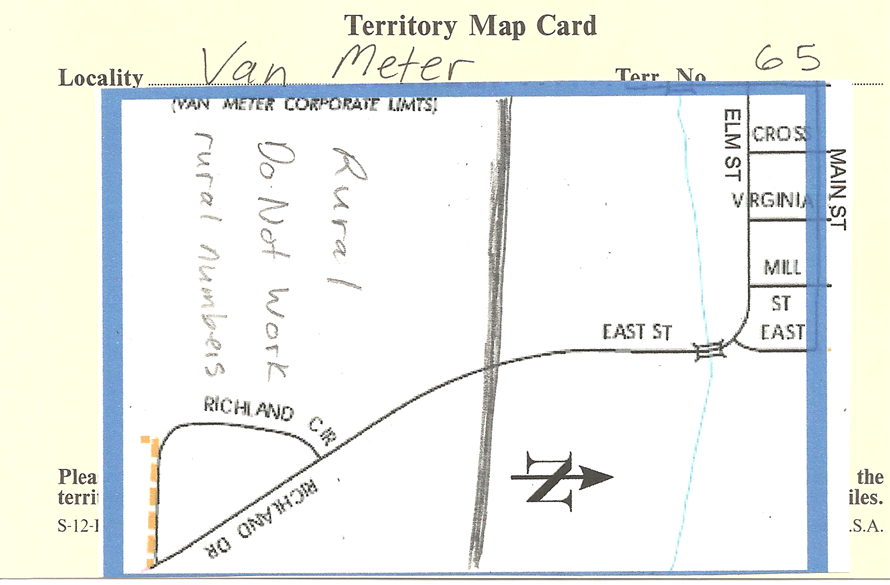 Territory Map Card
Locality Van Meter Terr. No. 65
(VAN METER CORPORATE LIMITS)
Rural
Do Not Work
rural numbers
ELM ST
CROSS
MAIN ST
VIRGINIA
MILL
ST
EAST
EAST ST
RICHLAND CIR
RICHLAND DR
N
Plea the
terri iles.
S-12-I .S.A.